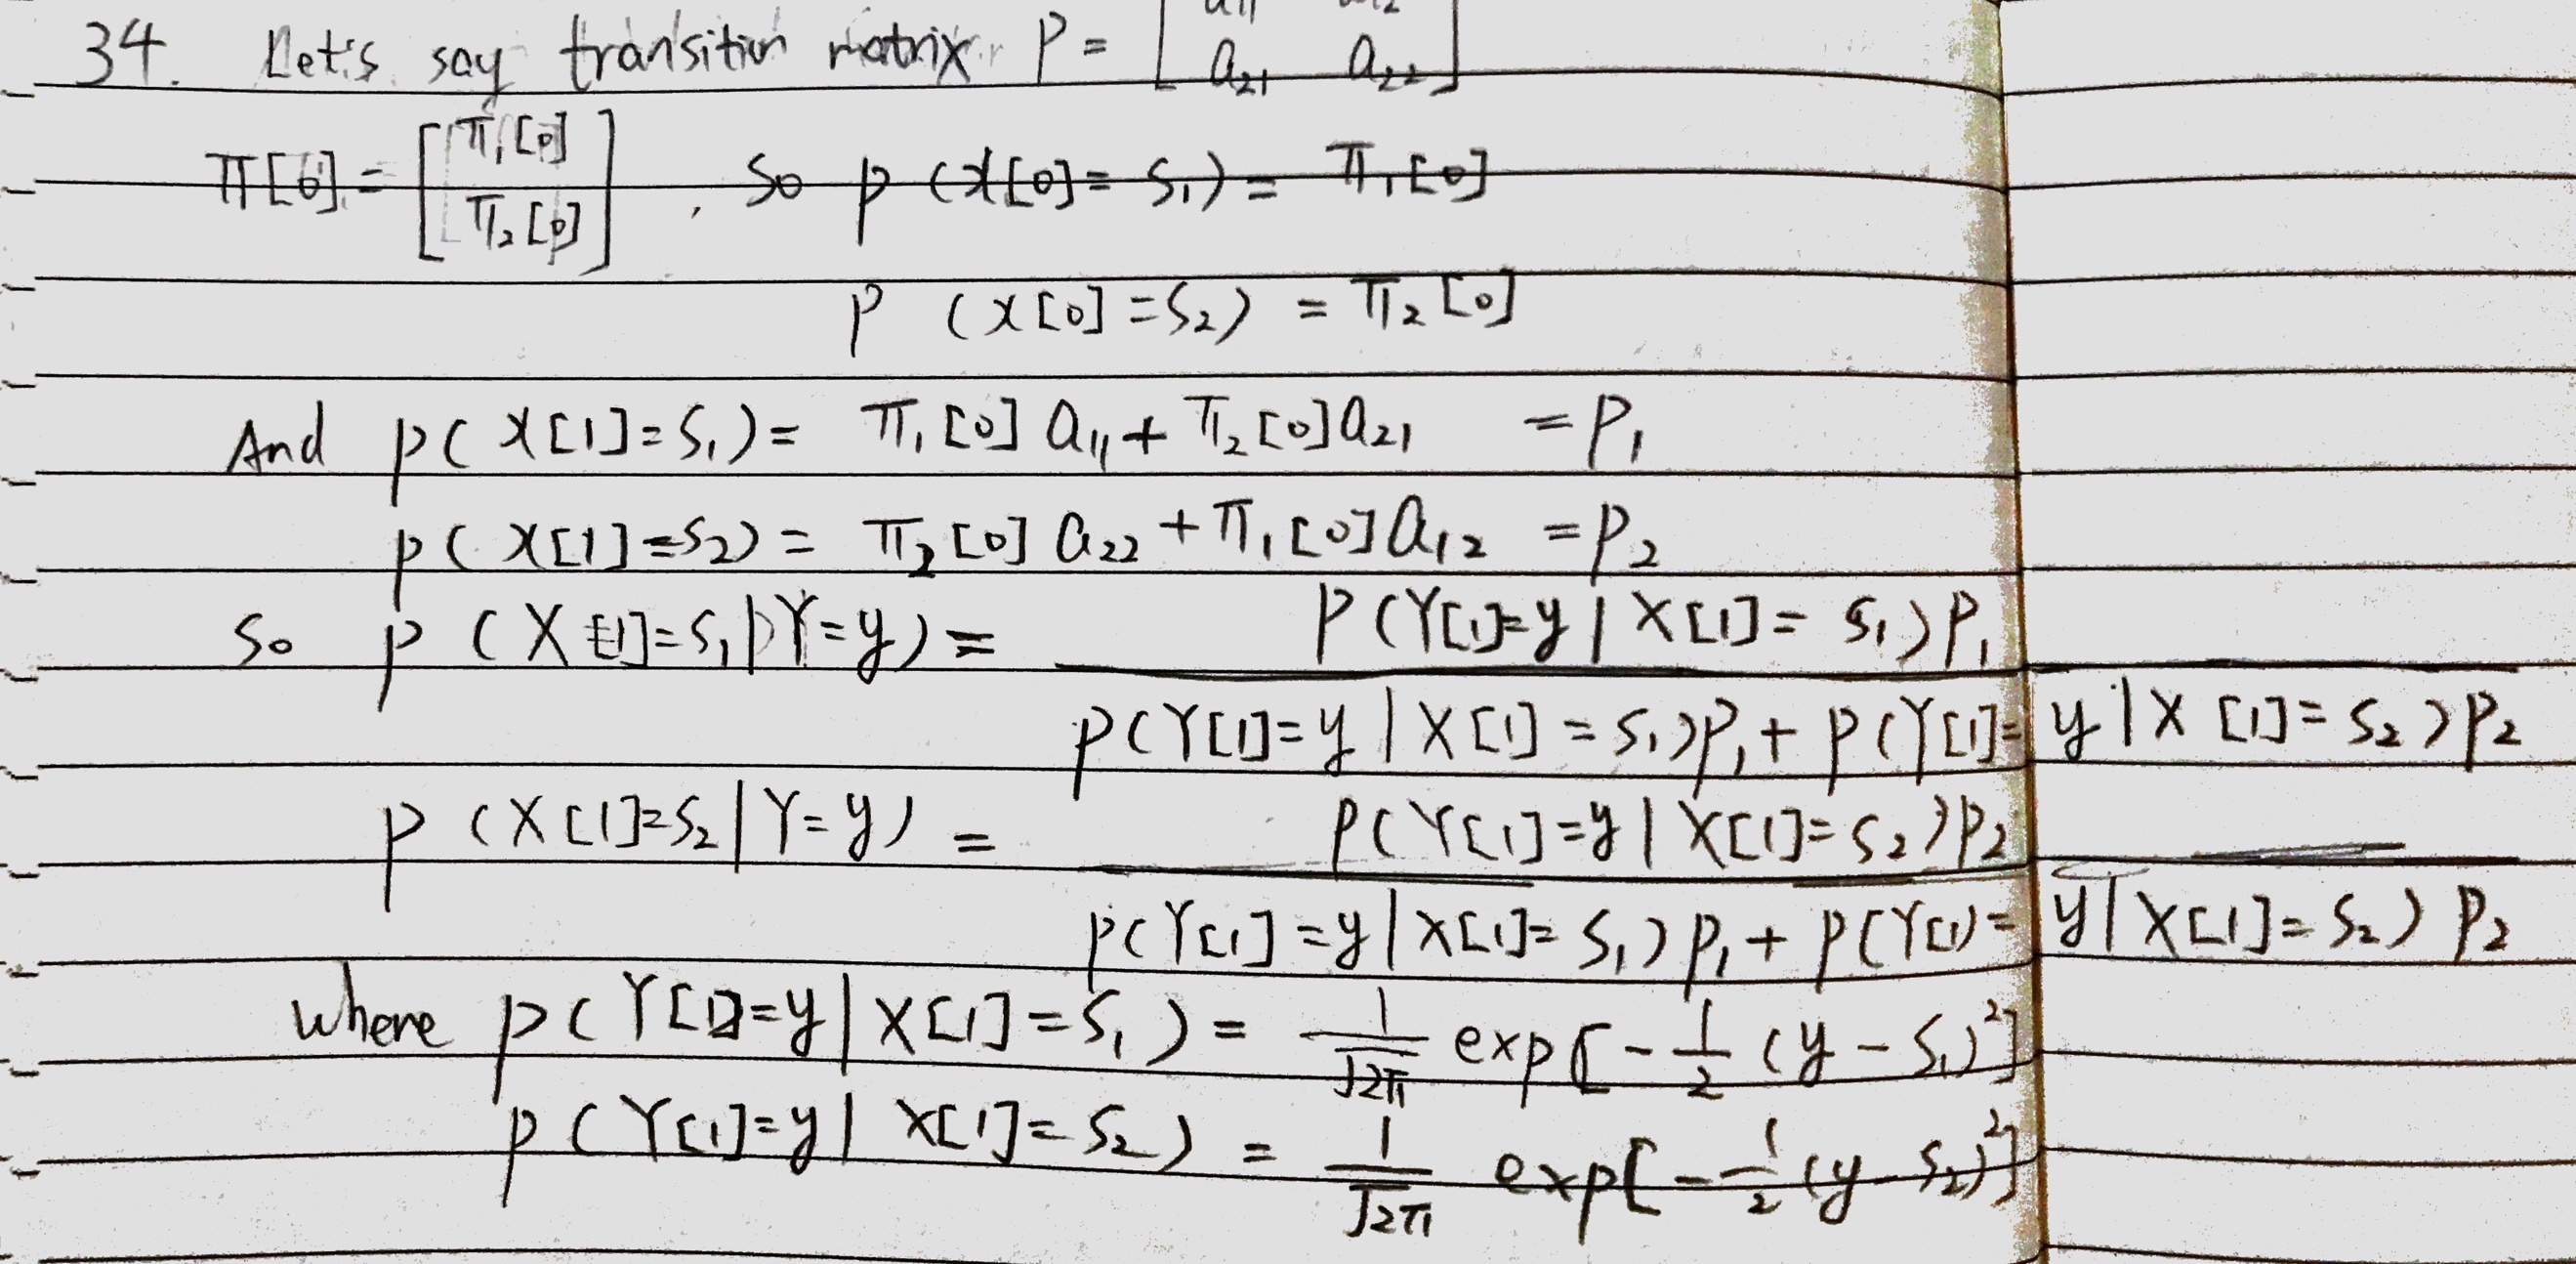 34. Let's say transition matrix P = [ a11 a12
a21 a22 ]
π[0] = [ π1[0]
π2[0] ] , so p (x[0] = s1) = π1[0]
p (x[0] = s2) = π2[0]
And p( x[1] = s1) = π1[0] a11 + π2[0] a21 = p1
p( x[1] = s2) = π2[0] a22 + π1[0] a12 = p2
so p (X[1]=s1|Y=y) = P(Y[1]=y | X[1] = s1) p1
p(Y[1]=y | X[1] = s1) p1 + p(Y[1]= y | X [1] = s2) p2
p (X[1]=s2 | Y=y) = p(Y[1]=y | X[1]=s2) p2
p(Y[1] =y | X[1]= s1) p1 + p(Y[1)= y | X[1]= s2) p2
where p( Y[1]=y | X[1] = s1 ) = 1/√2π exp[ - 1/2 (y - s1)²]
p (Y[1]=y | X[1] = s2 ) = 1/√2π exp[ - 1/2 (y - s2)²]